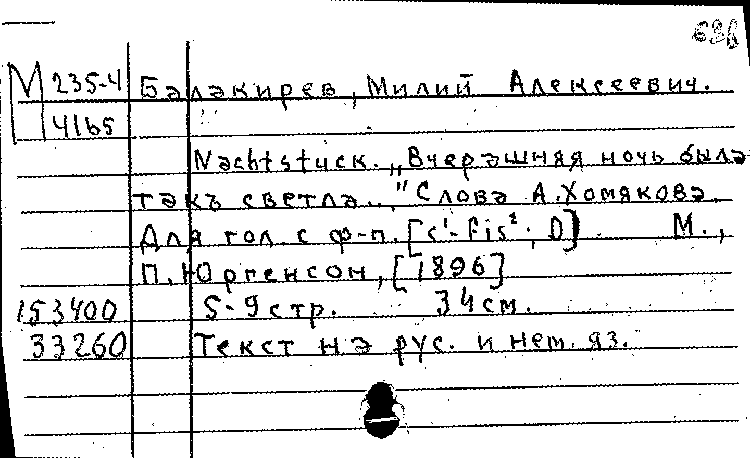 М 235-4 Балакирев, Милий Алексеевич.
4165
Nachtstück. „Вчерашняя ночь была
такъ светла..." Слова А. Хомякова.
Для гол. с ф-п. [c¹-fis²; D] М.,
П. Юргенсон, [1896]
153400 5-9 стр. 34 см.
33260 Текст на рус. и нем. яз.